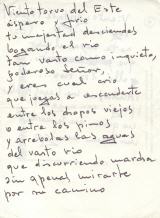 Viento torvo del Este
áspero y frío
tu majestad desciendes
bogando el río
tan vasto como inquieto,
poderoso Señor,
y eres cual crío
que juegas a esconderte
entre los chopos viejos
o entre los pinos
y arrebolas las aguas
del vasto río
que discurriendo marcha
sin apenas mirarte
por su camino